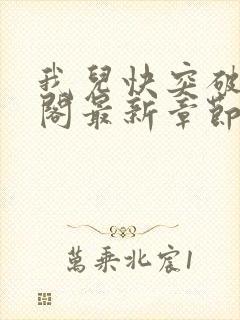 我兒快突破
閣最新章節
萬乘北宸1